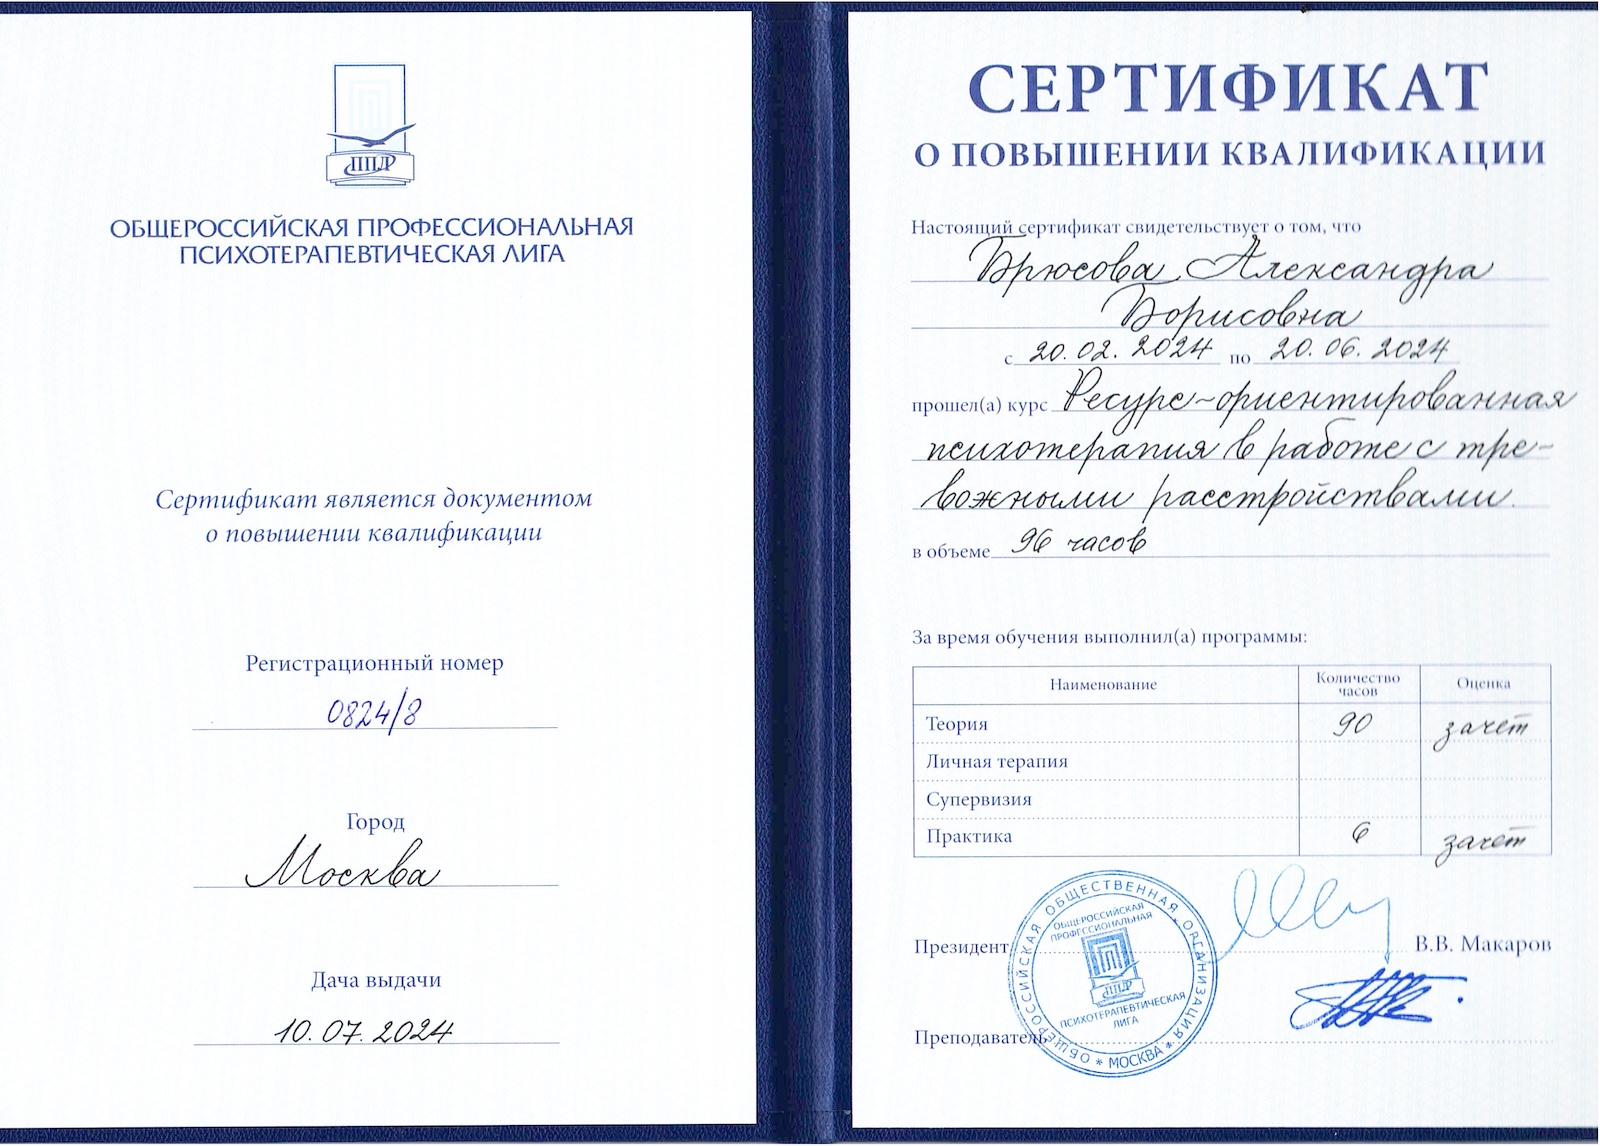 ППЛ
ОБЩЕРОССИЙСКАЯ ПРОФЕССИОНАЛЬНАЯ
ПСИХОТЕРАПЕВТИЧЕСКАЯ ЛИГА
Сертификат является документом
о повышении квалификации
Регистрационный номер
0824/8
Город
Москва
Дача выдачи
10.07.2024
СЕРТИФИКАТ
О ПОВЫШЕНИИ КВАЛИФИКАЦИИ
Настоящий сертификат свидетельствует о том, что
Брюсова Александра
Борисовна
с 20.02.2024 по 20.06.2024
прошел(а) курс Ресурс-ориентированная
психотерапия в работе с тре-
вожными расстройствами.
в объеме 96 часов
За время обучения выполнил(а) программы:
Наименование Количество часов Оценка
Теория 90 зачет
Личная терапия
Супервизия
Практика 6 зачет
Президент В.В. Макаров
Преподаватель
ОБЩЕРОССИЙСКАЯ ОБЩЕСТВЕННАЯ ОРГАНИЗАЦИЯ * МОСКВА *
ОБЩЕРОССИЙСКАЯ
ПРОФЕССИОНАЛЬНАЯ
ППЛ
ПСИХОТЕРАПЕВТИЧЕСКАЯ
ЛИГА